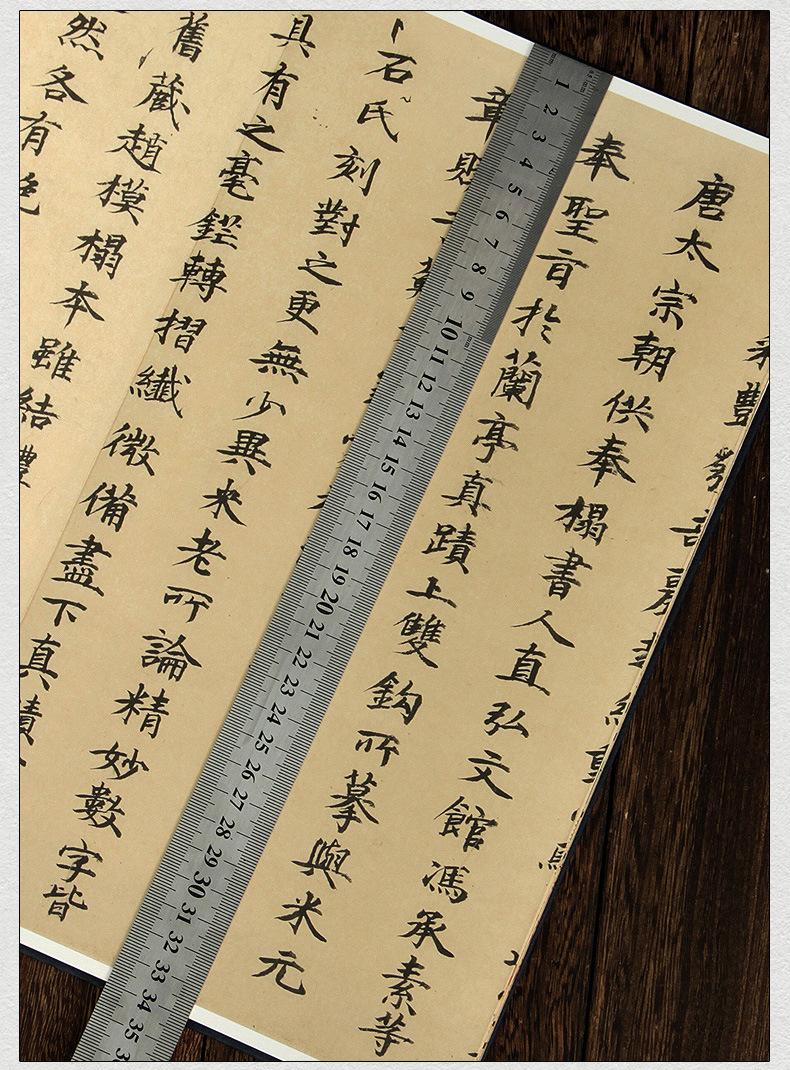 唐太宗朝供奉榻書人直弘文館馮承素等
奉聖旨於蘭亭真蹟上雙鈎所摹與米元
章
石氏刻對之更無少異米老所論精妙數字皆
具有之毫鋩轉摺纖微備盡下真蹟
舊蔵趙模榻本雖結體
然各有
1 2 3 4 5 6 7 8 9 10 11 12 13 14 15 16 17 18 19 20 21 22 23 24 25 26 27 28 29 30 31 32 33 34 35